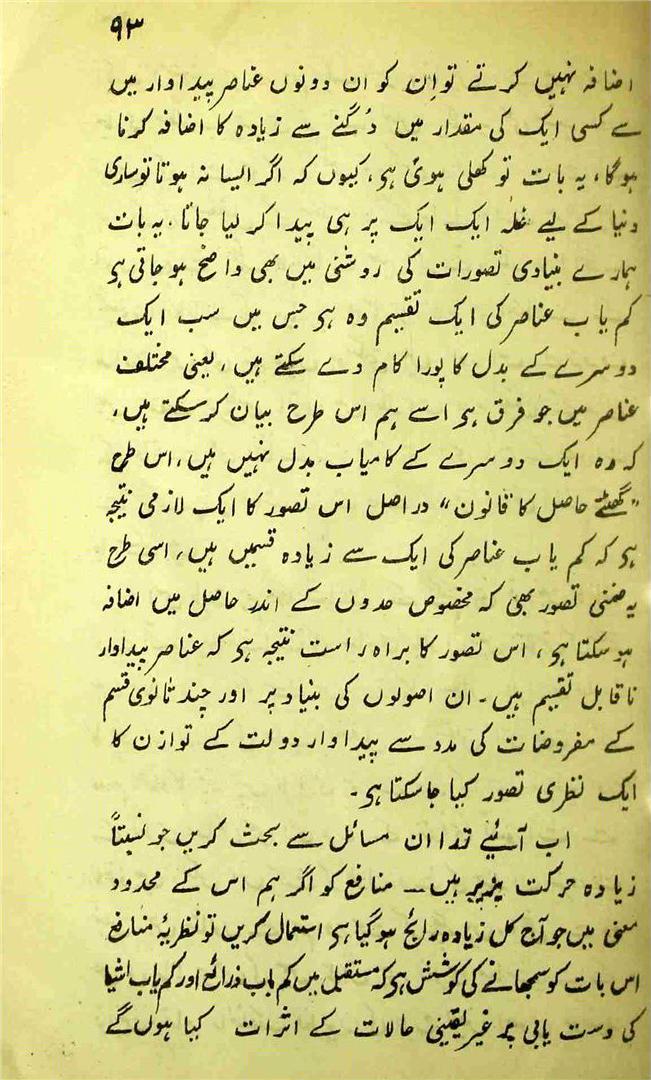 ۹۳
اضافہ نہیں کرتے تو اِن کو ان دونوں عناصر پیداوار میں
سے کسی ایک کی مقدار میں دُگنے سے زیادہ کا اضافہ کرنا
ہوگا، یہ بات تو کھلی ہوئی ہی، کیوں کہ اگر ایسا نہ ہوتا تو ساری
دنیا کے لیے غلہ ایک ایک پر ہی پیدا کر لیا جاتا۔ یہ بات
ہمارے بنیادی تصورات کی روشنی میں بھی واضح ہو جاتی ہی
کم یاب عناصر کی ایک تقسیم وہ ہی جس میں سب ایک
دوسرے کے بدل کا پورا کام دے سکتے ہیں، یعنی مختلف
عناصر میں جو فرق ہی اسے ہم اس طرح بیان کر سکتے ہیں،
کہ وہ ایک دوسرے کے کامیاب بدل نہیں ہیں، اس طرح
"گھٹتے حاصل کا قانون" دراصل اس تصور کا ایک لازمی نتیجہ
ہی کہ کم یاب عناصر کی ایک سے زیادہ قسمیں ہیں، اسی طرح
یہ ضمنی تصور بھی کہ مخصوص حدوں کے اندر حاصل میں اضافہ
ہو سکتا ہی، اس تصور کا براہ راست نتیجہ ہی کہ عناصر پیداوار
ناقابل تقسیم ہیں۔ ان اصولوں کی بنیاد پر اور چند ثانوی قسم
کے مفروضات کی مدد سے پیداوار دولت کے توازن کا
ایک نظری تصور کیا جا سکتا ہی۔
اب آئیے ذرا ان مسائل سے بحث کریں جو نسبتاً
زیادہ حرکت پذیر ہیں۔ منافع کو اگر ہم اس کے محدود
معنی میں جو آج کل زیادہ رائج ہو گیا ہی استعمال کریں تو نظریۂ منافع
اس بات کو سمجھانے کی کوشش ہی کہ مستقبل میں کم یاب ذرائع اور کم یاب اشیا
کی دست یابی پر غیر یقینی حالات کے اثرات کیا ہوں گے